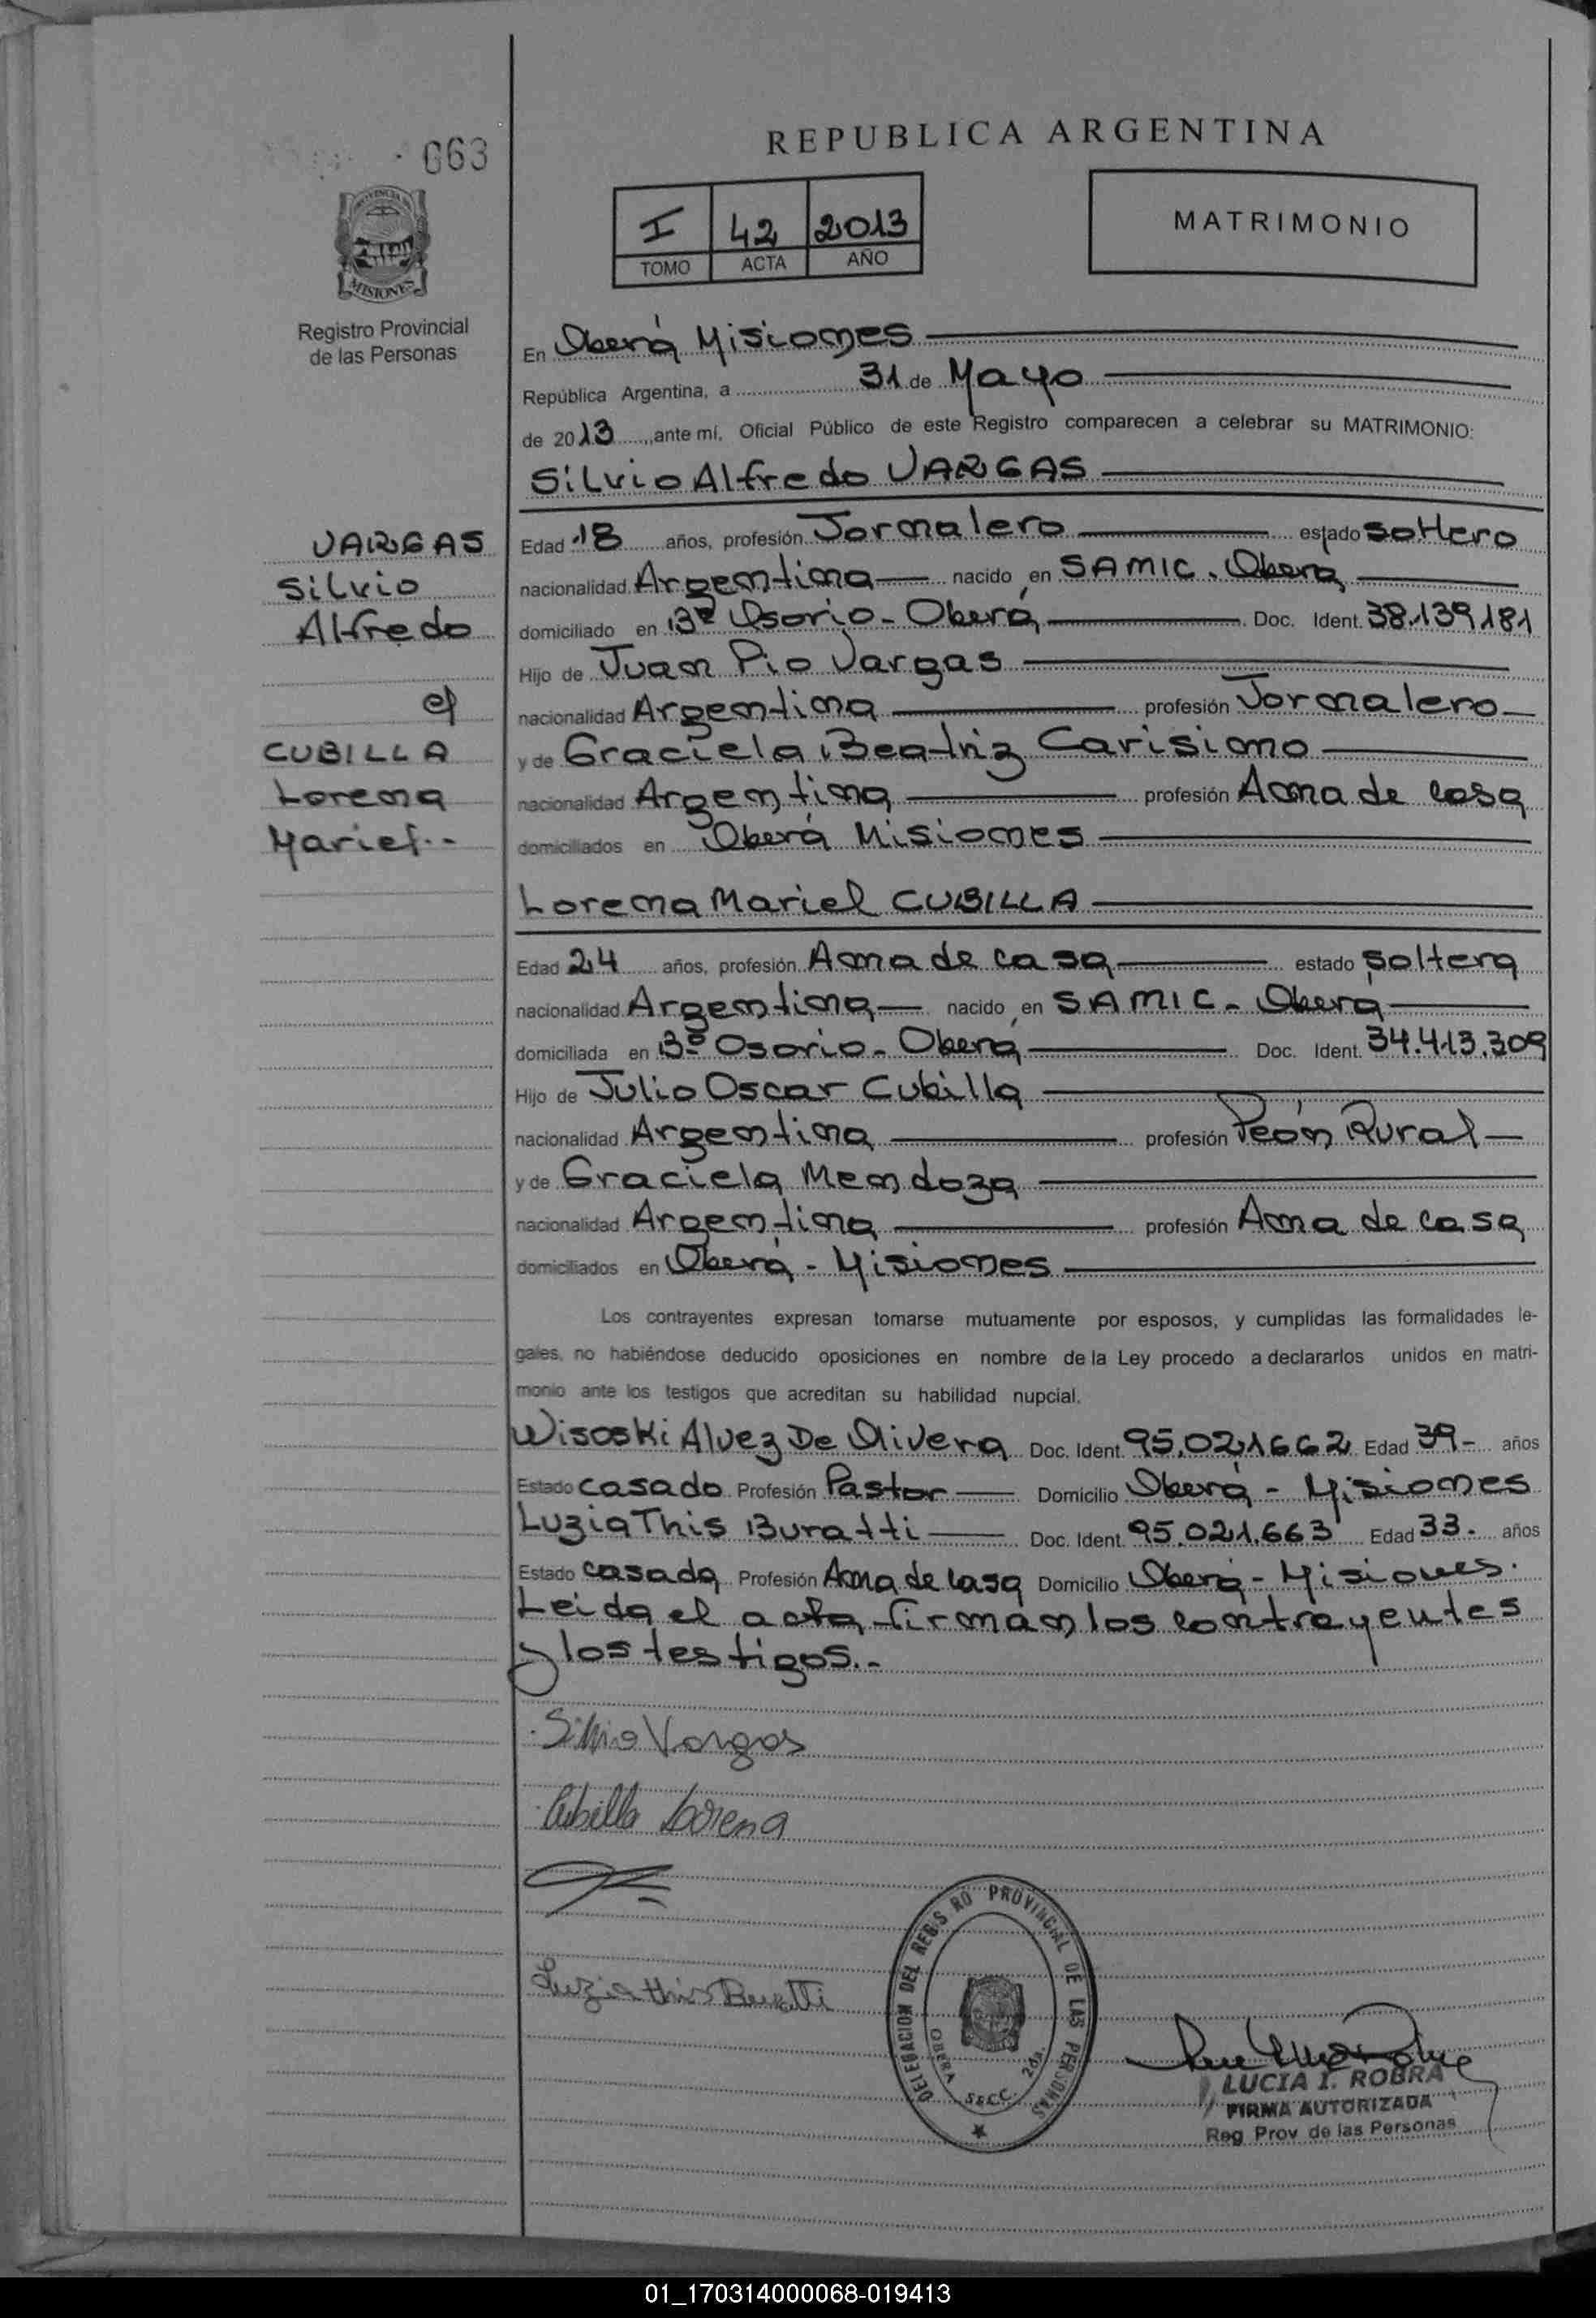 063
REPUBLICA ARGENTINA
I 42 2013
TOMO ACTA AÑO
MATRIMONIO
PROVINCIA DE
MISIONES
Registro Provincial
de las Personas
En Oberá Misiones
República Argentina, a 31 de Mayo
de 2013 ante mí, Oficial Público de este Registro comparecen a celebrar su MATRIMONIO:
Silvio Alfredo VARGAS
VARGAS
Silvio
Alfredo
c/
CUBILLA
Lorena
Mariel.-
Edad 18 años, profesión Jornalero estado soltero
nacionalidad Argentina nacido en SAMIC. Oberá
domiciliado en Bº Osorio - Oberá Doc. Ident. 38.139.181
Hijo de Juan Pio Vargas
nacionalidad Argentina profesión Jornalero
y de Graciela Beatriz Carisimo
nacionalidad Argentina profesión Ama de casa
domiciliados en Oberá Misiones
Lorena Mariel CUBILLA
Edad 24 años, profesión Ama de casa estado soltera
nacionalidad Argentina nacido en SAMIC - Oberá
domiciliada en Bº Osorio - Oberá Doc. Ident. 34.413.309
Hijo de Julio Oscar Cubilla
nacionalidad Argentina profesión Peón Rural
y de Graciela Mendoza
nacionalidad Argentina profesión Ama de casa
domiciliados en Oberá - Misiones
Los contrayentes expresan tomarse mutuamente por esposos, y cumplidas las formalidades le-
gales, no habiéndose deducido oposiciones en nombre de la Ley procedo a declararlos unidos en matri-
monio ante los testigos que acreditan su habilidad nupcial.
Wisoski Alvez De Olivera Doc. Ident. 95.021662 Edad 39- años
Estado casado Profesión Pastor Domicilio Oberá - Misiones
Luzia This Buratti Doc. Ident. 95.021.663 Edad 33. años
Estado casada Profesión Ama de casa Domicilio Oberá - Misiones.
Leida el acta firman los contrayentes
y los testigos.-
Silvio Vargas
Cubilla Lorena
Luzia this Buratti
DELEGACION DEL REGIS RO PROVINCIAL DE LAS PERSONAS
OBERA SECC. 2da.
LUCIA I. ROBRA
FIRMA AUTORIZADA
Reg Prov de las Personas
01_170314000068-019413